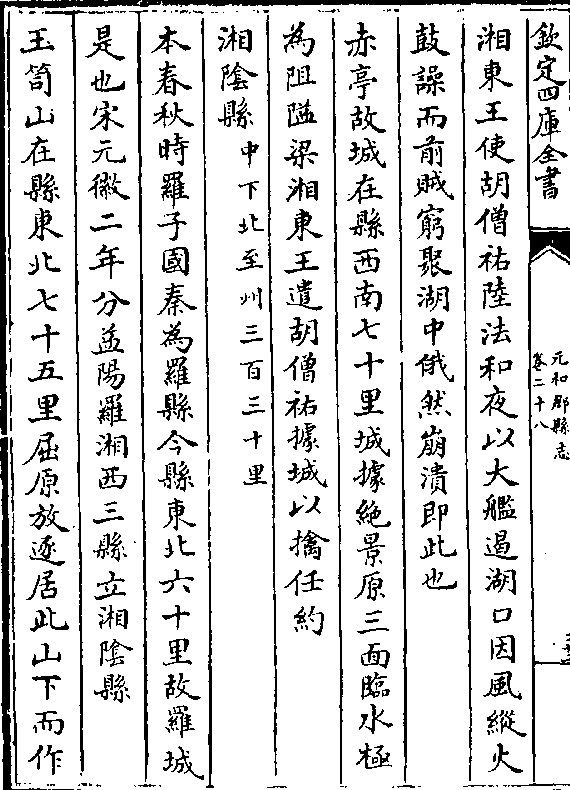 欽定四庫全書
元和郡縣志
卷二十八
湘東王使胡僧祐陸法和夜以大艦遏湖口因風縱火
鼓譟而前賊窮聚湖中俄然崩潰即此也
赤亭故城在縣西南七十里城據絶景原三面臨水極
為阻隘梁湘東王遣胡僧祐據城以擒任約
湘隂縣中下北至州三百三十里
本春秋時羅子國秦為羅縣今縣東北六十里故羅城
是也宋元徽二年分益陽羅湘西三縣立湘隂縣
玉笥山在縣東北七十五里屈原放逐居此山下而作